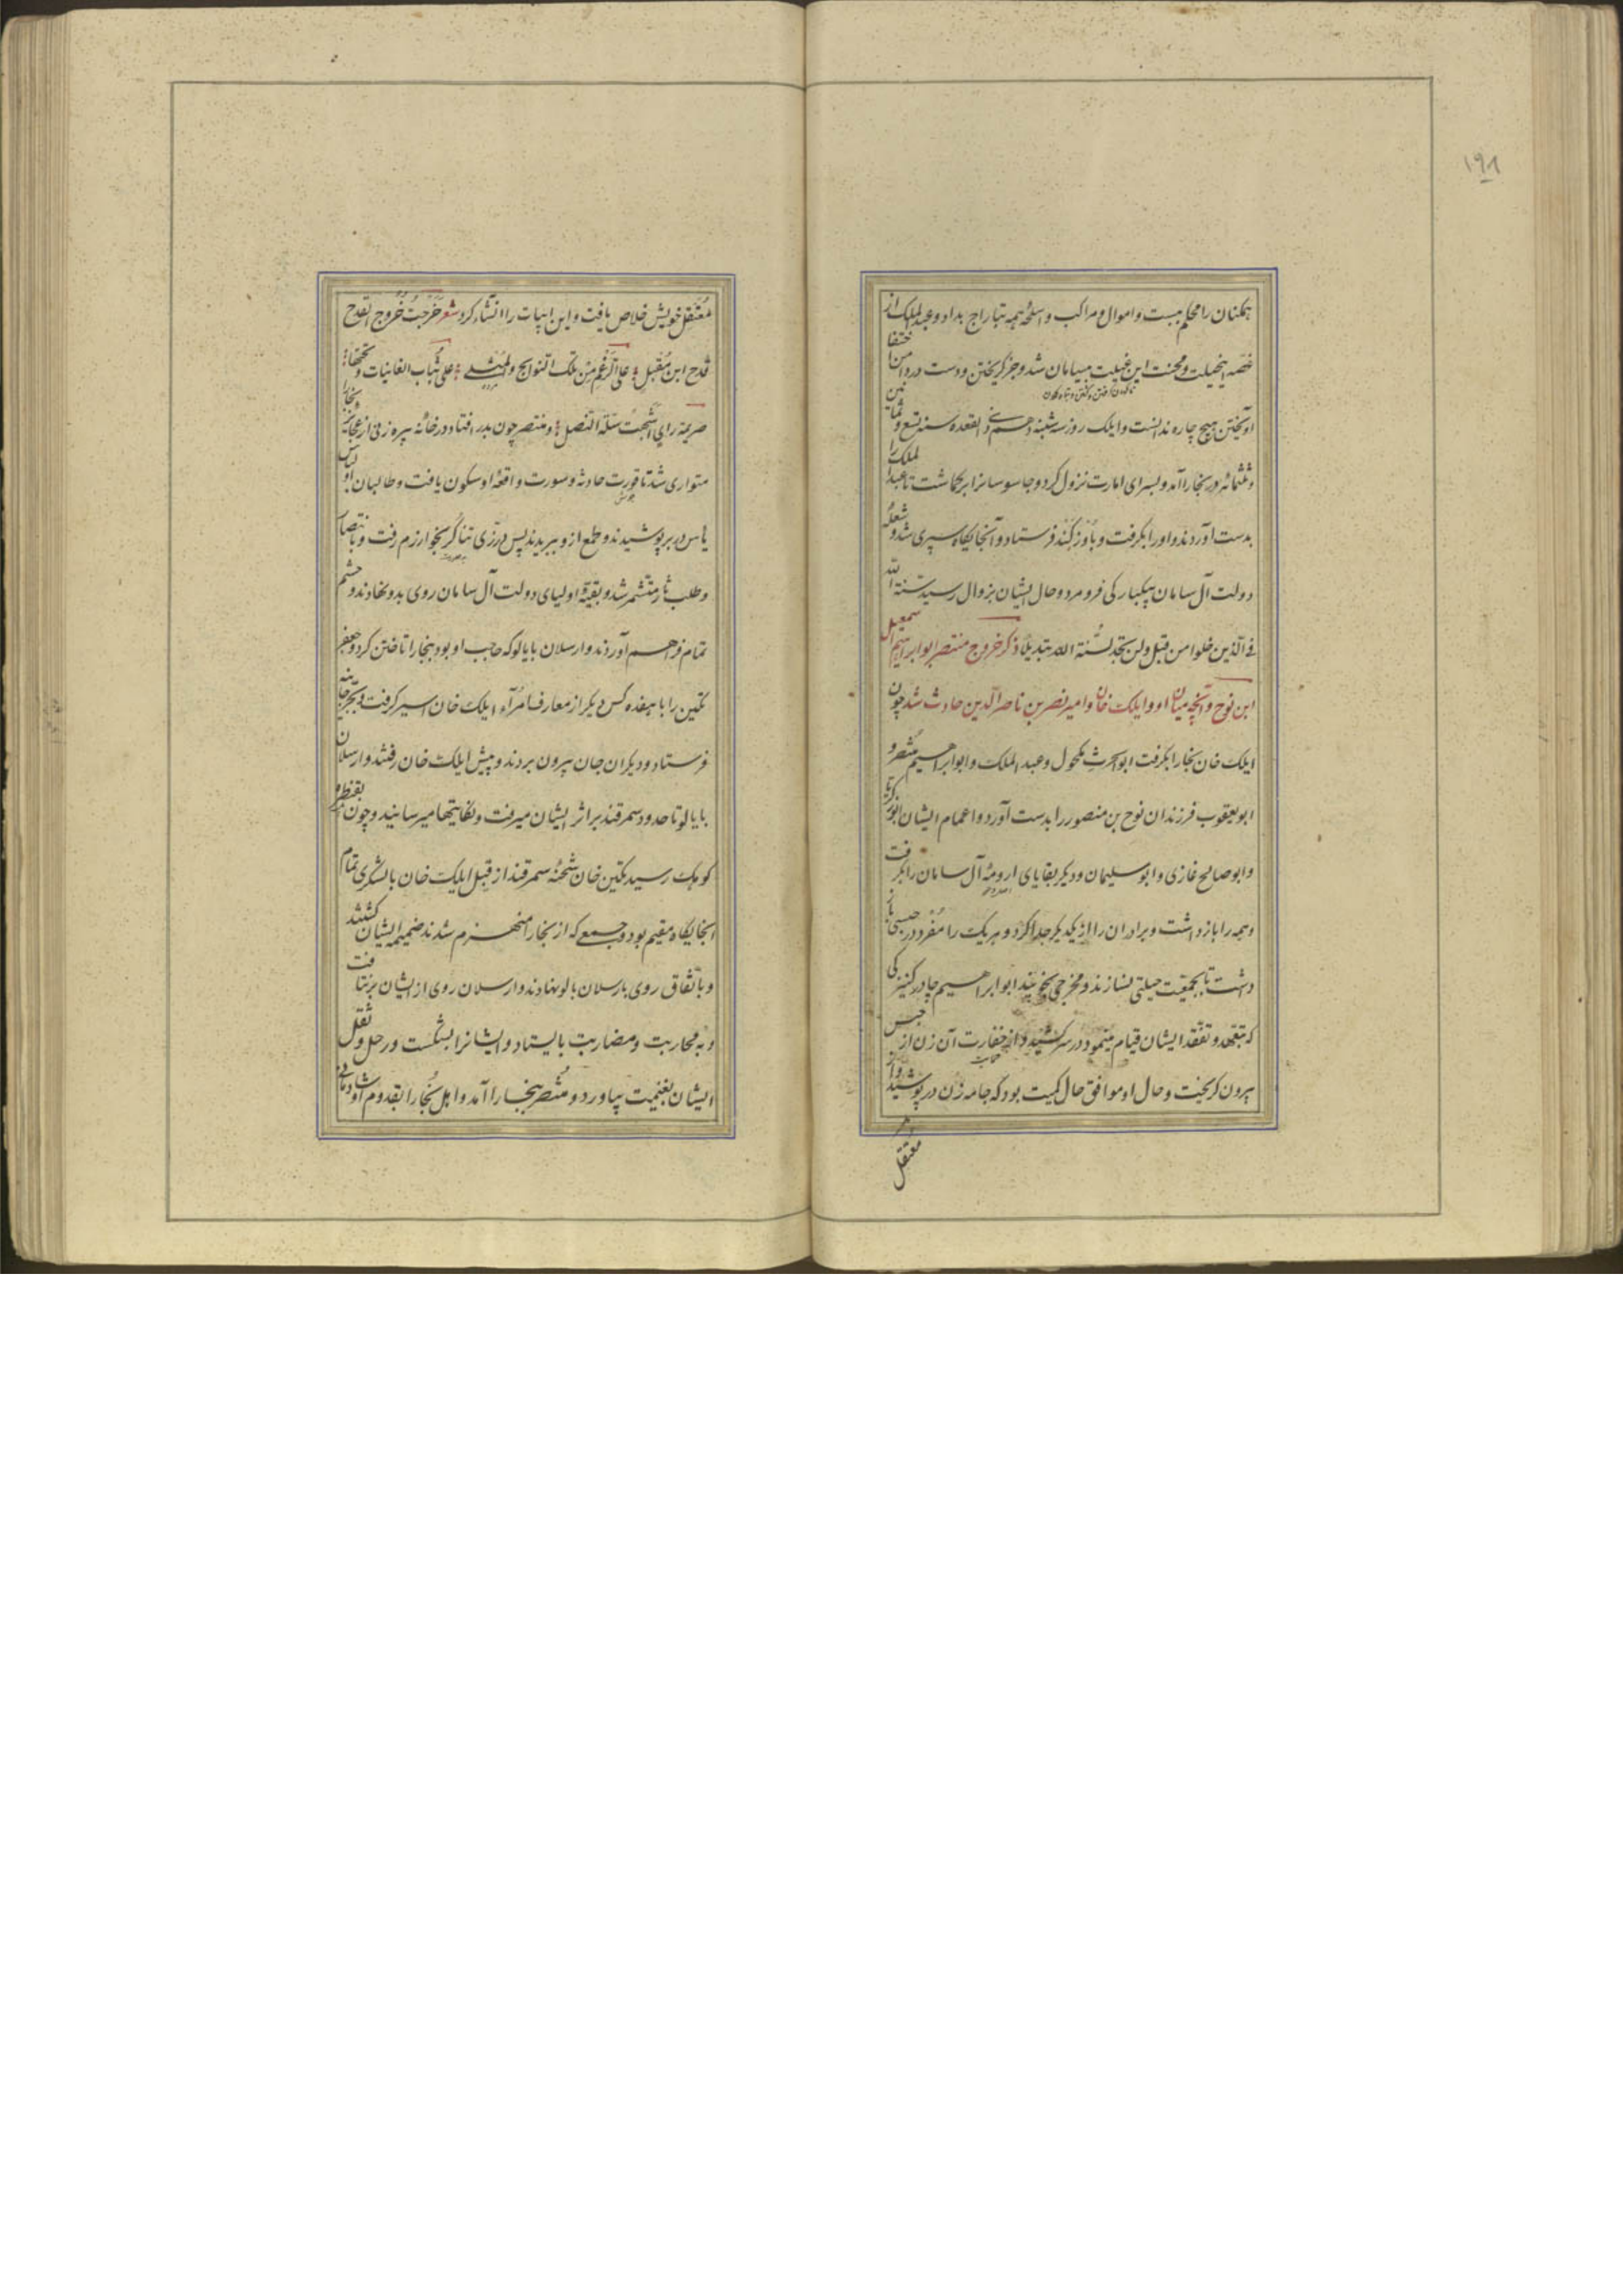 ۱۹۸
همکنان را محکم ببست و اموال و مراکب و اسلحه همه بتاراج بداد و عبدالملک از
غصه این حیلت و محنت این غیلت بی سامان شد و جز گریختن و دست در دامن اختفا
آویختن هیچ چاره ندانست و ایلک روز سه شنبه دهم ذی القعده سنه تسع و ثمانین
و ثلثمائه در بخارا آمد و بسرای امارت نزول کرد و جاسوسانرا برگماشت تا عبدالملک را
بدست آوردند و او را بگرفت و باوزکند فرستاد و آنجایگاه سپری شد و شعله
دولت آل سامان بیکبارگی فرو مرد و حال ایشان بزوال رسید سنة الله
فی الذین خلوا من قبل ولن تجد لسنة الله تبدیلا ذکر خروج منتصر ابو ابراهیم اسمعیل
ابن نوح و آنچه میان او و ایلک خان و امیر نصر بن ناصر الدین حادث شد چون
ایلک خان بخارا بگرفت ابوالحرث مکحول و عبدالملک و ابو ابراهیم منتصر و
ابو یعقوب فرزندان نوح بن منصور را بدست آورد و اعمام ایشان ابو زکریا
و ابو صالح غازی و ابو سلیمان و دیگر بقایای ارومهٔ آل سامان را بگرفت
و همه را باز داشت و برادران را از یکدیگر جدا کرد و هر یک را مفرد در حبسی باز
داشت تا بجمعیت حیلتی نسازند و مخرجی نجویند ابو ابراهیم چادر کنیزکی
که بتعهد و تفقد ایشان قیام مینمود در سر کشید و از خفارت آن زن از حبس
بیرون گریخت و حال او موافق حال کمیت بود که جامه زن در پوشید و از
معتقل
معتقل خویش خلاص یافت و این ابیات را انشاء کرد شعر خرجت خروج القدح
قدح ابن مقبل علی الرغم من تلک النوابح والمشلی علی ثیاب الغانیات و تحتها
صریمة رای اشبهت سلة النصل و منتصر چون بدر افتاد در خانه پیره زنی از عجایز بخارا
متواری شد تا فورت حادثه و سورت واقعه او سکون یافت و طالبان او لباس
یأس در بر پوشیدند و طمع ازو ببریدند پس در زی تناکر بخوارزم رفت و بانتصار
و طلب ثار متشمر شد و بقیهٔ اولیای دولت آل سامان روی بدو نهادند و حشم
تمام فراهم آوردند و ارسلان بایالو که حاجب او بود ببخارا تاختن کرد و جعفر
تکین را با هفده کس دیگر از معارف امرآء ایلک خان اسیر گرفت و بجرجانیه
فرستاد و دیگران جان بیرون بردند و پیش ایلک خان رفتند و ارسلان
بایالو تا حدود سمرقند بر اثر ایشان میرفت و نکایتها میرسانید و چون بقنطره
کوهک رسید تکین خان شحنهٔ سمرقند از قبل ایلک خان با لشکری تمام
آنجایگاه مقیم بود و جمعی که از بخارا منهزم شدند ضمیمه ایشان گشتند
و باتفاق روی بارسلان بالو نهادند و ارسلان روی از ایشان برنتافت
و به محاربت و مضاربت بایستاد و ایشانرا بشکست و رحل و ثقل
ایشان بغنیمت بیاورد و منتصر ببخارا آمد و اهل بخارا بقدوم او شادمانی